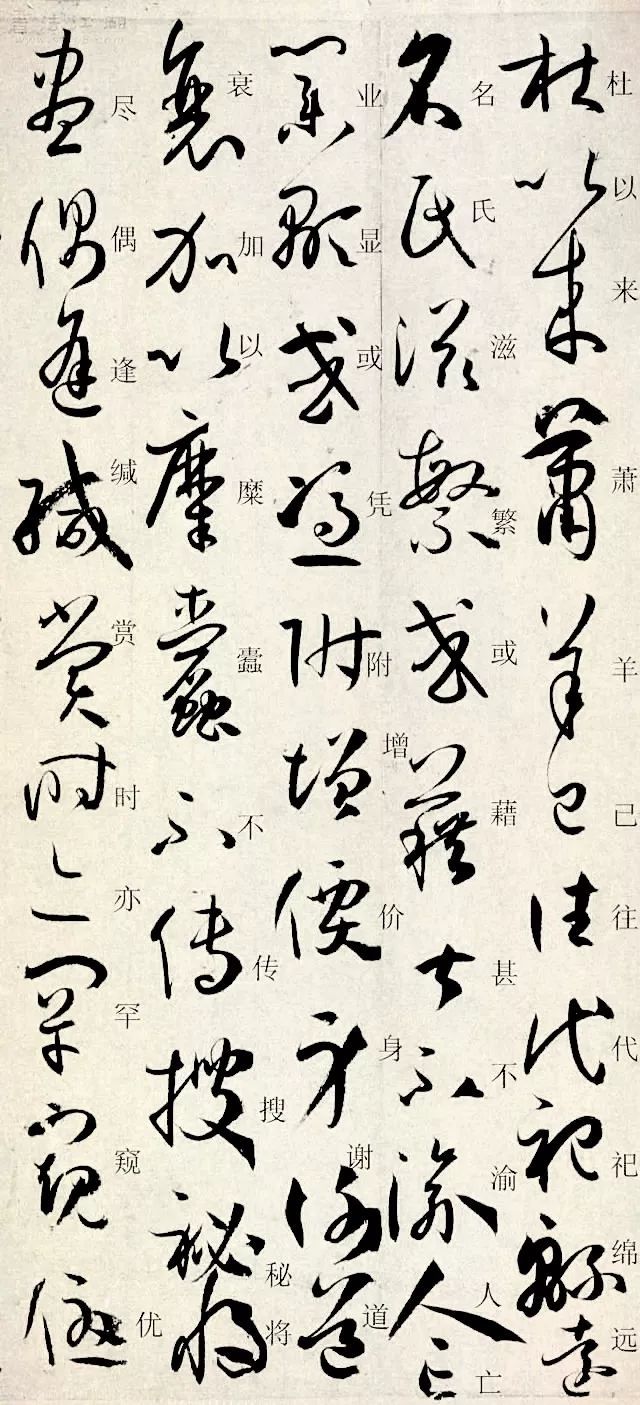 杜以来萧羊已往代祀绵远
杜以來蕭羊已往代祀緜遠
名氏滋繁或藉甚不渝人亡
名氏滋繁或藉甚不渝人亡
业显或凭附增价身谢道
業顯或憑附增價身謝道
衰加以糜蠹不传搜秘将
衰加以糜蠹不傳搜祕將
尽偶逢缄赏时亦罕窥优
盡偶逢緘賞時亦罕窺優